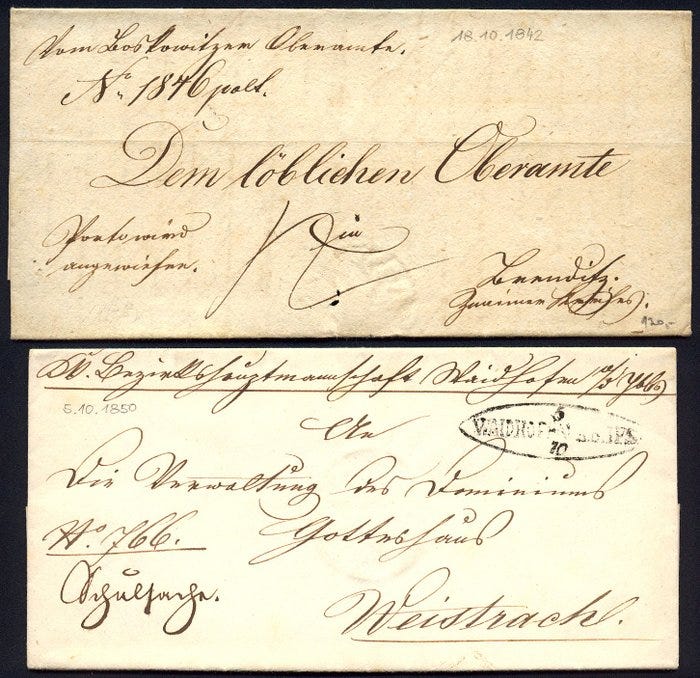 Vom Boskowitzer Oberamte.
18.10.1842
No. 1846 polt.
Dem löblichen Oberamte
Porto wird
angewiesen.
in
Brenditz.
Znaimer Kreises.
120,-
KK. Bezirkshauptmannschaft Waidhofen a/d Ybbs
5.10.1850
An
5
WAIDHOFEN
10
Die Verwaltung des Dominiums
No. 766.
Gotteshaus
Schulsache.
Weistrach.